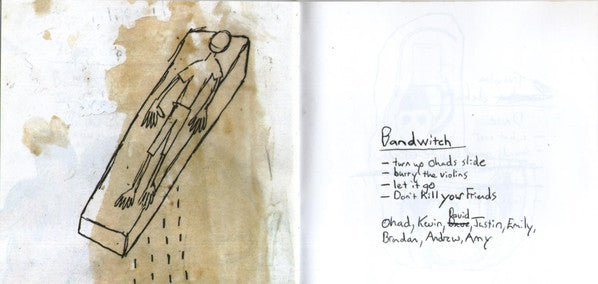 Bandwitch
- turn up Ohads slide
- burry the violins
- let it go
- Don't Kill your Friends
Ohad, Kevin, David, Justin, Emily,
Brendan, Andrew, Amy